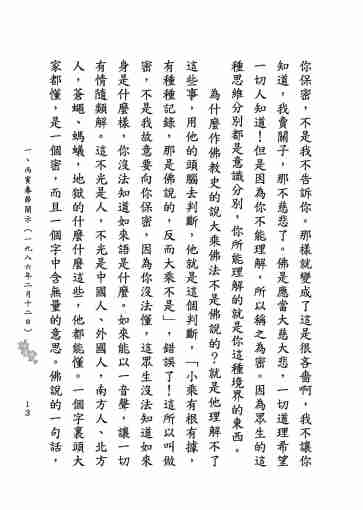 你保密，不是我不告訴你。那樣就變成了這是很吝嗇啊，我不讓你
知道，我賣關子，那不慈悲了。佛是應當大慈大悲，一切道理希望
一切人知道！但是因為你不能理解，所以稱之為密。因為眾生的這
種思維分別都是意識分別，你所能理解的就是你這種境界的東西。
為什麼作佛教史的說大乘佛法不是佛說的？就是他理解不了
這些事，用他的頭腦去判斷，他就是這個判斷，「小乘有根有據，
有種種記錄，那是佛說的，反而大乘不是」，錯誤了！這所以叫做
密，不是我故意要向你保密，因為你沒法懂，這眾生沒法知道如來
身是什麼樣，你沒法知道如來語是什麼。如來能以一音聲，讓一切
有情隨類解。這不光是人，不光是中國人、外國人，南方人、北方
人，蒼蠅、螞蟻，地獄的什麼什麼這些，他都能懂。一個字裏頭大
家都懂，是一個密，而且一個字中含無量的意思。佛說的一句話，
一、丙寅春節開示（一九八六年二月十二日）
13